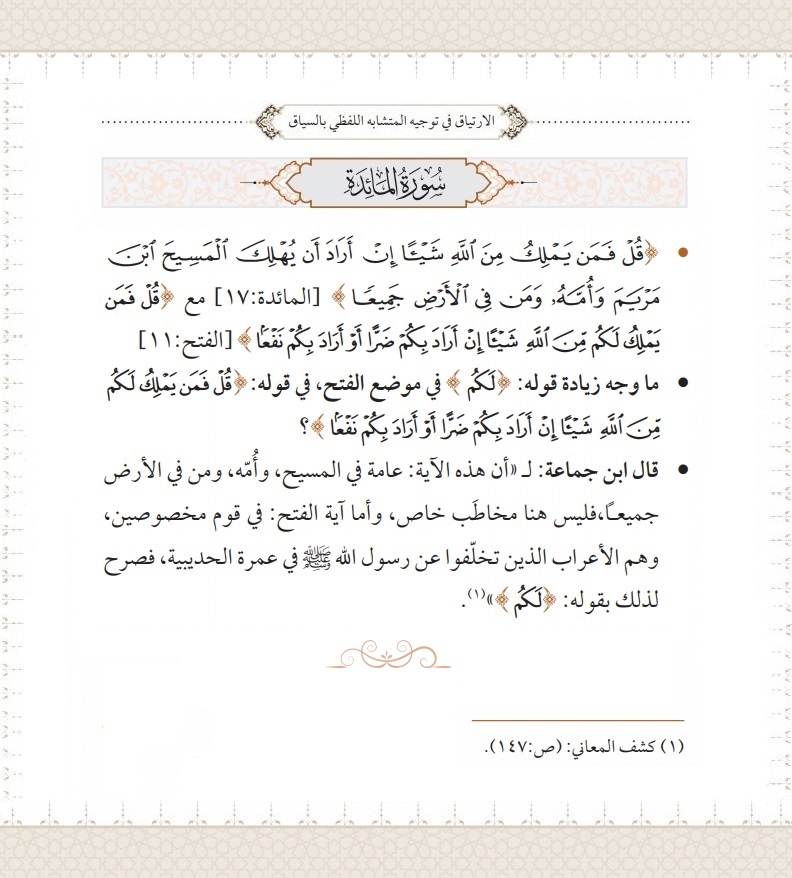 الارتياق في توجيه المتشابه اللفظي بالسياق
سُورَةُ المَائِدَةِ
• ﴿قُلۡ فَمَن يَمۡلِكُ مِنَ ٱللَّهِ شَيۡـًٔا إِنۡ أَرَادَ أَن يُهۡلِكَ ٱلۡمَسِيحَ ٱبۡنَ
مَرۡيَمَ وَأُمَّهُۥ وَمَن فِي ٱلۡأَرۡضِ جَمِيعٗا﴾ [المائدة:١٧] مع ﴿قُلۡ فَمَن
يَمۡلِكُ لَكُم مِّنَ ٱللَّهِ شَيۡـًٔا إِنۡ أَرَادَ بِكُمۡ ضَرًّا أَوۡ أَرَادَ بِكُمۡ نَفۡعَۢا﴾ [الفتح:١١]
• ما وجه زيادة قوله: ﴿لَكُم﴾ في موضع الفتح، في قوله: ﴿قُلۡ فَمَن يَمۡلِكُ لَكُم
مِّنَ ٱللَّهِ شَيۡـًٔا إِنۡ أَرَادَ بِكُمۡ ضَرًّا أَوۡ أَرَادَ بِكُمۡ نَفۡعَۢا﴾؟
• قال ابن جماعة: لـ «أن هذه الآية: عامة في المسيح، وأُمّه، ومن في الأرض
جميعـًا،فليس هنا مخاطَب خاص، وأما آية الفتح: في قوم مخصوصين،
وهم الأعراب الذين تخلّفوا عن رسول الله ﷺ في عمرة الحديبية، فصرح
لذلك بقوله: ﴿لَكُم﴾»(١).
(١) كشف المعاني: (ص:١٤٧).